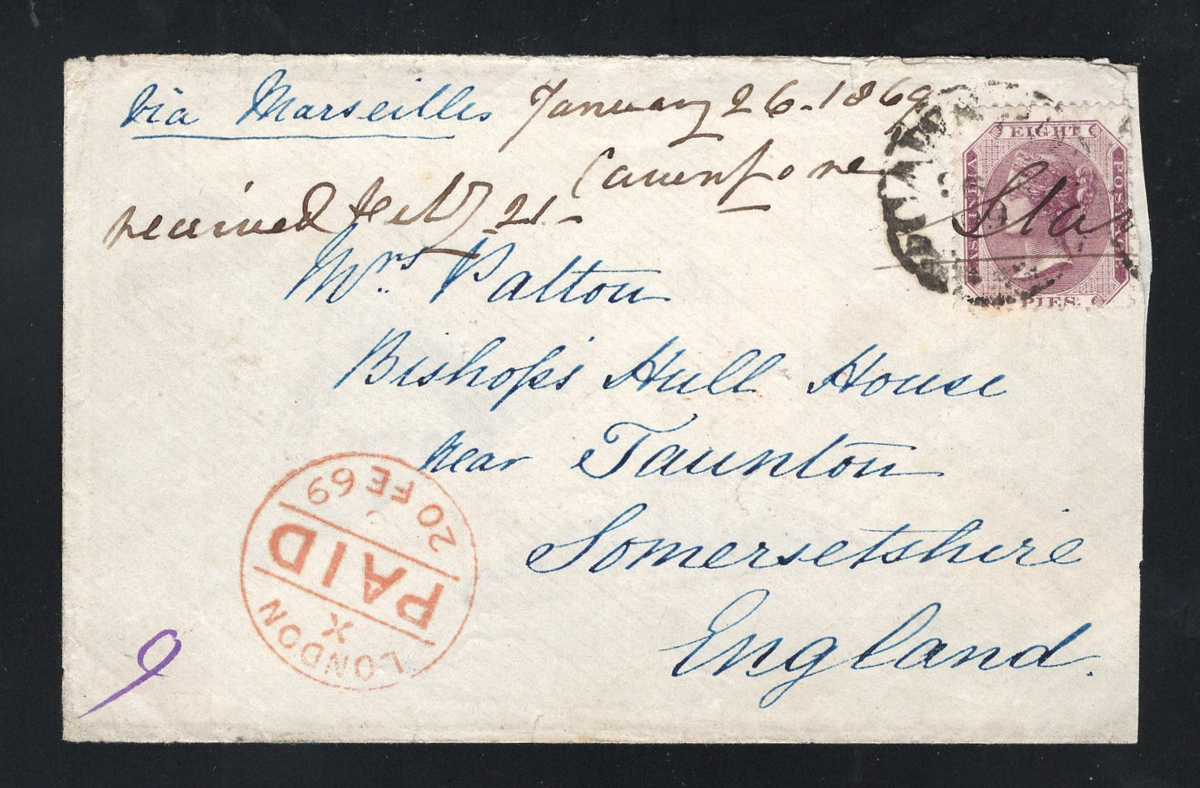 via Marseilles January 26 - 1869
Cawnpore
received Feby 21 -
Mrs. Patton
Bishops Hull House
near Taunton
Somersetshire
England.
EIGHT
EAST INDIA
POSTAGE
PIES.
LONDON
X
PAID
20 FE 69